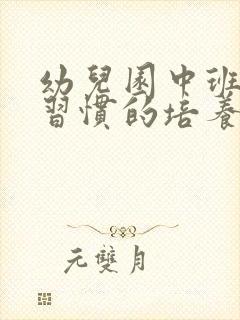 幼兒園中班
習慣的培養
元雙月